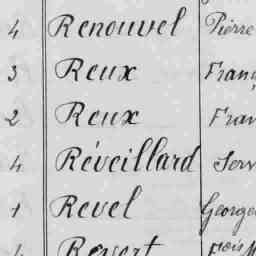 4 Renouvel Pierre
3 Reux Franç
2 Reux Fran
4 Réveillard
1 Revel George
Revert